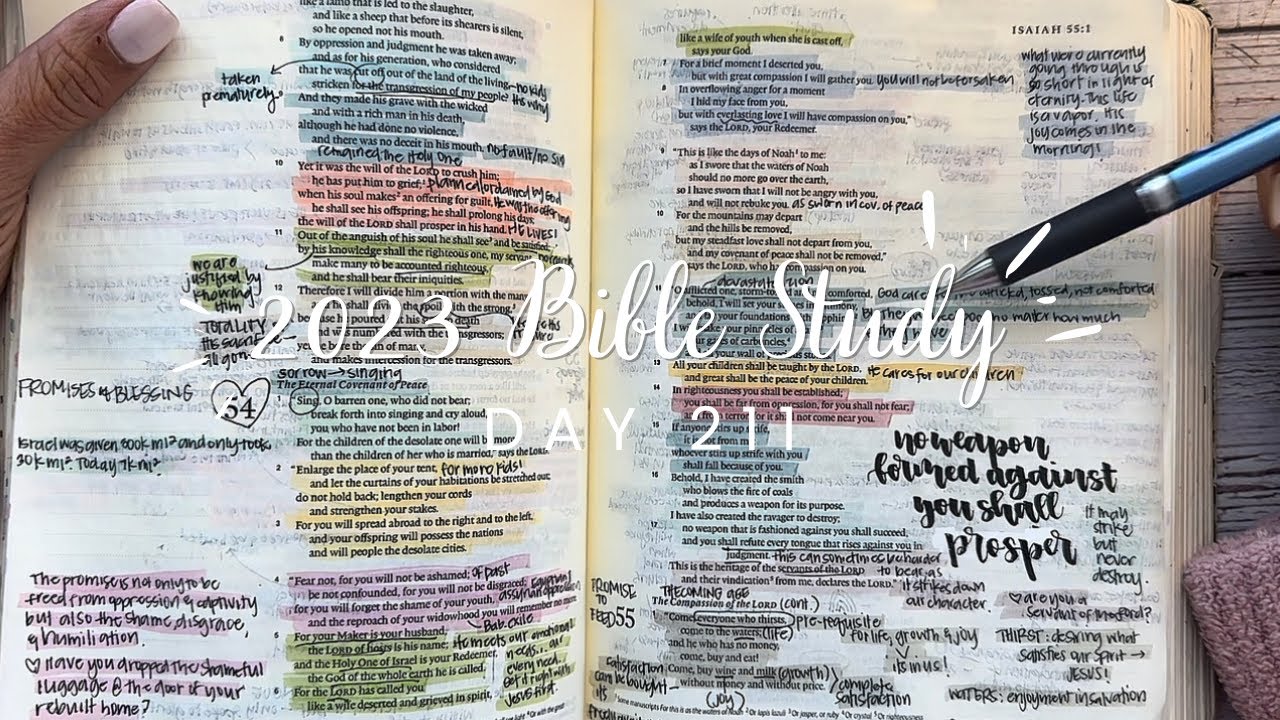 like a lamb that is led to the slaughter,
and like a sheep that before its shearers is silent,
so he opened not his mouth.
8 By oppression and judgment he was taken away;
and as for his generation, who considered
that he was cut off out of the land of the living, no kids
stricken for the transgression of my people? its why
taken
prematurely
9 And they made his grave with the wicked
and with a rich man in his death,
although he had done no violence,
and there was no deceit in his mouth. no fault/no sin
remained the Holy One
10 Yet it was the will of the LORD to crush him;
he has put him to grief; planned/ordained by God
when his soul makes an offering for guilt, He was the offering
he shall see his offspring; he shall prolong his days;
the will of the LORD shall prosper in his hand. HE LIVES!
11 Out of the anguish of his soul he shall see and be satisfied;
by his knowledge shall the righteous one, my servant,
make many to be accounted righteous,
and he shall bear their iniquities.
we are
justified by
knowing
him
12 Therefore I will divide him a portion with the many,
with the strong,
because he poured out his
and was numbered with the transgressors;
yet he bore the sin of many,
and makes intercession for the transgressors.
TOTALITY
His sacrifice
all gone
sorrow → singing
The Eternal Covenant of Peace
PROMISES & BLESSING
54
"Sing, O barren one, who did not bear;
break forth into singing and cry aloud,
you who have not been in labor!
For the children of the desolate one will be more
than the children of her who is married," says the LORD.
Israel was given 300k mi² and only took
30k mi². Today 7k mi².
2 "Enlarge the place of your tent, for more kids!
and let the curtains of your habitations be stretched out;
do not hold back; lengthen your cords
and strengthen your stakes.
3 For you will spread abroad to the right and to the left,
and your offspring will possess the nations
and will people the desolate cities.
4 "Fear not, for you will not be ashamed; of past
be not confounded, for you will not be disgraced;
for you will forget the shame of your youth,
and the reproach of your widowhood you will remember no more.
Bab. exile
5 For your Maker is your husband,
the LORD of hosts is his name;
and the Holy One of Israel is your Redeemer,
the God of the whole earth he is called.
6 For the LORD has called you
like a wife deserted and grieved in spirit,
He meets our emotional
needs... our
every need...
get it right with
Jesus first.
The promise is not only to be
freed from oppression & captivity
but also the shame, disgrace,
& humiliation.
♡ Have you dropped the shameful
luggage @ the door of your
rebuilt home?
ISAIAH 55:1
like a wife of youth when she is cast off,
says your God.
7 For a brief moment I deserted you,
but with great compassion I will gather you. you will not be forsaken
8 In overflowing anger for a moment
I hid my face from you,
but with everlasting love I will have compassion on you,"
says the LORD, your Redeemer.
what we're currently
going through is
so short in light of
eternity. This life
is a vapor. His
joy comes in the
morning!
9 "This is like the days of Noah to me:
as I swore that the waters of Noah
should no more go over the earth,
so I have sworn that I will not be angry with you,
and will not rebuke you. as sworn in cov. of peace
10 For the mountains may depart
and the hills be removed,
but my steadfast love shall not depart from you,
and my covenant of peace shall not be removed,"
says the LORD, who has compassion on you.
devastation
11 "O afflicted one, storm-tossed and not comforted,
behold, I will set your stones in antimony,
tossed, not comforted
who matter how much
13 All your children shall be taught by the LORD,
and great shall be the peace of your children.
He cares for our children
14 In righteousness you shall be established;
you shall be far from oppression, for you shall not fear;
and from terror, for it shall not come near you.
15 If anyone stirs up strife,
it is not from me;
whoever stirs up strife with you
shall fall because of you.
16 Behold, I have created the smith
who blows the fire of coals
and produces a weapon for its purpose.
I have also created the ravager to destroy;
17 no weapon that is fashioned against you shall succeed,
and you shall refute every tongue that rises against you in
judgment. this can sometimes be harder
to bear as
it strikes down
our character.
This is the heritage of the servants of the LORD
and their vindication from me, declares the LORD."
no weapon
formed against
you shall
prosper
it may
strike
but
never
destroy.
♡ are you a
servant of the Lord?
THE COMING AGE
The Compassion of the LORD (cont.)
PROMISE
TO
FEED 55
"Come, everyone who thirsts, pre-requisite
come to the waters; (life)
and he who has no money,
come, buy and eat!
Come, buy wine and milk (growth)
without money and without price.
(joy)
for life, growth & joy
its in us!
complete
satisfaction
satisfaction
can be bought
THIRST: desiring what
satisfies our spirit →
JESUS!
WATERS: enjoyment in salvation
2023 Bible Study
DAY 211